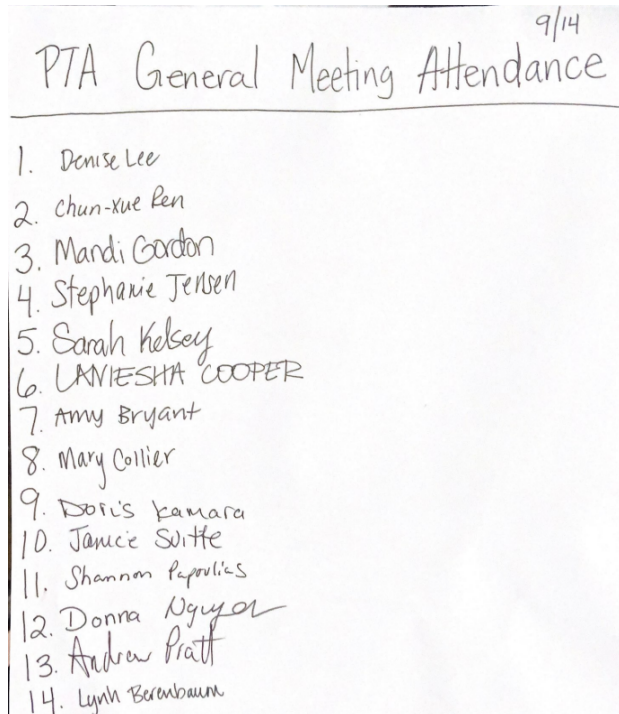 9/14
PTA General Meeting Attendance
1. Denise Lee
2. Chun-Xue Ren
3. Mandi Gordon
4. Stephanie Jensen
5. Sarah Kelsey
6. LANIESHA COOPER
7. Amy Bryant
8. Mary Collier
9. Doris Kamara
10. Janice Suitte
11. Shannon Papoulias
12. Donna Nguyen
13. Andrew Pratt
14. Lynh Berenbaum